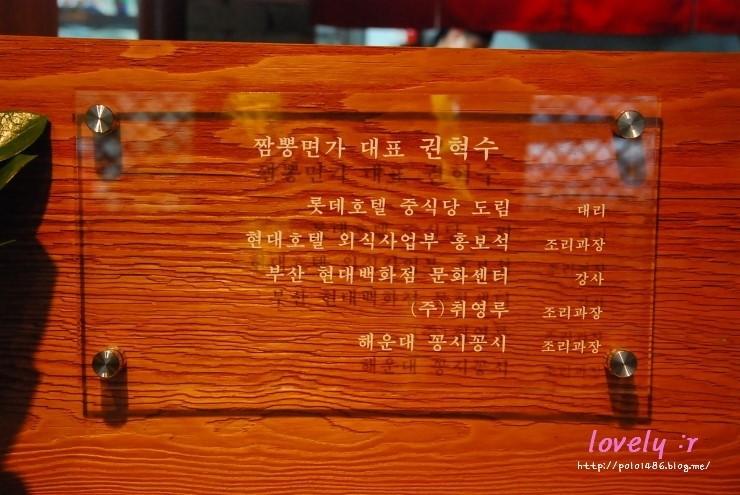 짬뽕면가 대표 권혁수
롯데호텔 중식당 도림 대리
현대호텔 외식사업부 홍보석 조리과장
부산 현대백화점 문화센터 강사
(주)취영루 조리과장
해운대 꽁시꽁시 조리과장
lovely :r
http://polo1486.blog.me/